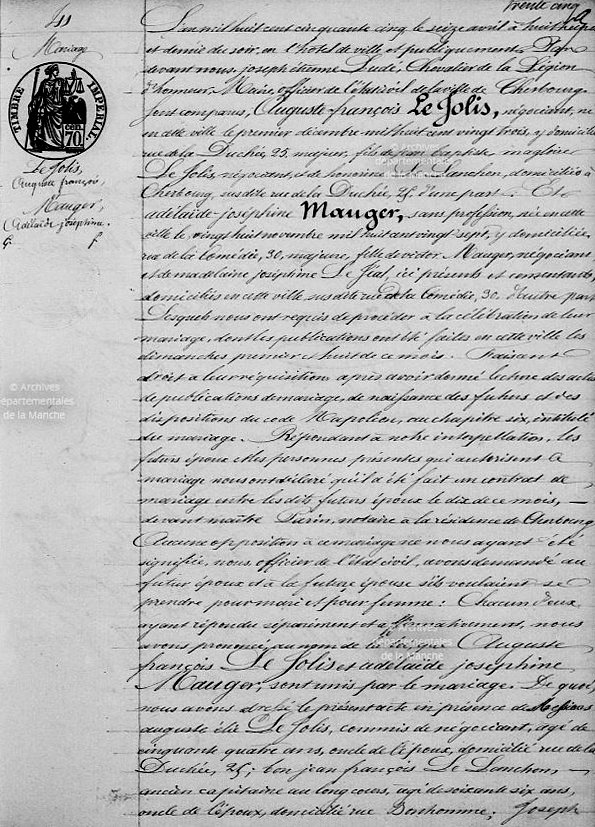 trente cinq
41
Mariage
TIMBRE IMPÉRIAL
70
Le Jolis,
Auguste françois,
Mauger,
Adélaïde joséphine.
L'an mil huit cent cinquante cinq le seize avril à huit heures
et demie du soir, en l'hôtel de ville, et publiquement. Par
devant nous, joseph étienne Ludé, Chevalier de la Légion
d'honneur, Maire, officier de l'état civil de la ville de Cherbourg
sont comparus, Auguste-françois Le Jolis, négociant, né
en cette ville le premier décembre mil huit cent vingt trois, y domicilié
rue de la Duché, 25, majeur, fils de jean baptiste magloire
Le Jolis, négociant, et de honorine Le Lanchon, domiciliés à
Cherbourg, susdite rue de la Duchée, 25, d'une part. Et
adélaïde-joséphine Mauger, sans profession, née en cette
ville le vingt huit novembre mil huit cent vingt sept, y domiciliée
rue de la Comédie, 30, majeure, fille de victor Mauger, négociant
et de madelaine joséphine Le Jéal, ici présents et consentants,
domiciliés en cette ville, susdite rue de la Comédie, 30, d'autre part.
Lesquels nous ont requis de procéder à la célébration de leur
mariage, dont les publications ont été faites en cette ville les
dimanches premier et huit de ce mois. Faisant
droit à leur réquisition, après avoir donné lecture des actes
de publications de mariage, de naissance des futurs et des
dispositions du code Napoléon, au chapitre six, intitulé
du mariage. Répondant à notre interpellation, les
futurs époux et les personnes présentes qui autorisent ce
mariage nous ont déclaré qu'il a été fait un contrat de
mariage entre les dits futurs époux le dix de ce mois, —
devant maître Turin, notaire à la résidence de Cherbourg
Aucune opposition à ce mariage ne nous ayant été
signifiée, nous, officier de l'état civil, avons demandé au
futur époux et à la future épouse s'ils voulaient se
prendre pour mari et pour femme : Chacun d'eux
ayant répondu séparément et affirmativement, nous
avons prononcé, au nom de la loi, que Auguste
françois Le Jolis et adélaïde joséphine
Mauger, sont unis par le mariage. De quoi
nous avons dressé le présent acte en présence de Messieurs
auguste élie Le Jolis, commis de négociant, âgé de
cinquante quatre ans, oncle de l'époux, domicilié rue de la
Duchée, 25 ; bon jean françois Le Lanchon,
ancien capitaine au long cours, âgé de soixante six ans,
oncle de l'époux, domicilié rue Bonhomme ; Joseph
© Archives
départementales
de la Manche